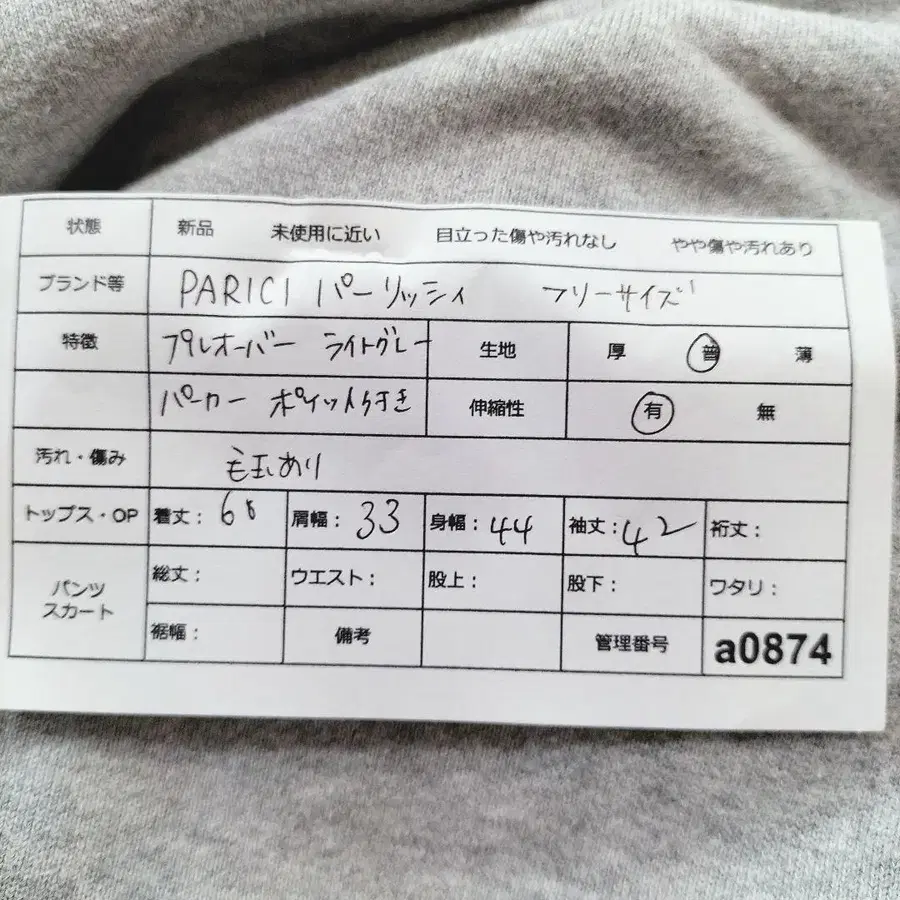 状態 新品 未使用に近い 目立った傷や汚れなし やや傷や汚れあり
ブランド等 PARICI パーリッシィ フリーサイズ
特徴 プルオーバー ライトグレー 生地 厚 普 薄
パーカー ポケット付き 伸縮性 有 無
汚れ・傷み 毛玉あり
トップス・OP 着丈: 68 肩幅: 33 身幅: 44 袖丈: 42 裄丈:
パンツ スカート 総丈: ウエスト: 股上: 股下: ワタリ:
裾幅: 備考 管理番号 a0874